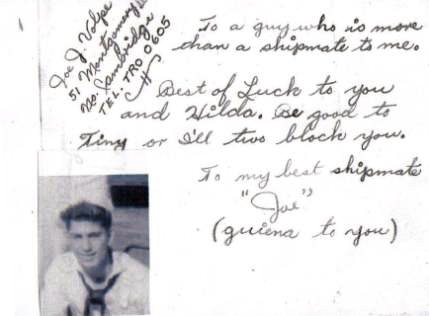 Joe J. Volpe
51 Montgomery
No. Cambridge
TEL. TRO 0605
To a guy who is more
than a shipmate to me.
Best of Luck to you
and Hilda. Be good to
Tiny or I'll two block you.
To my best shipmate
"Joe"
(guiena to you)